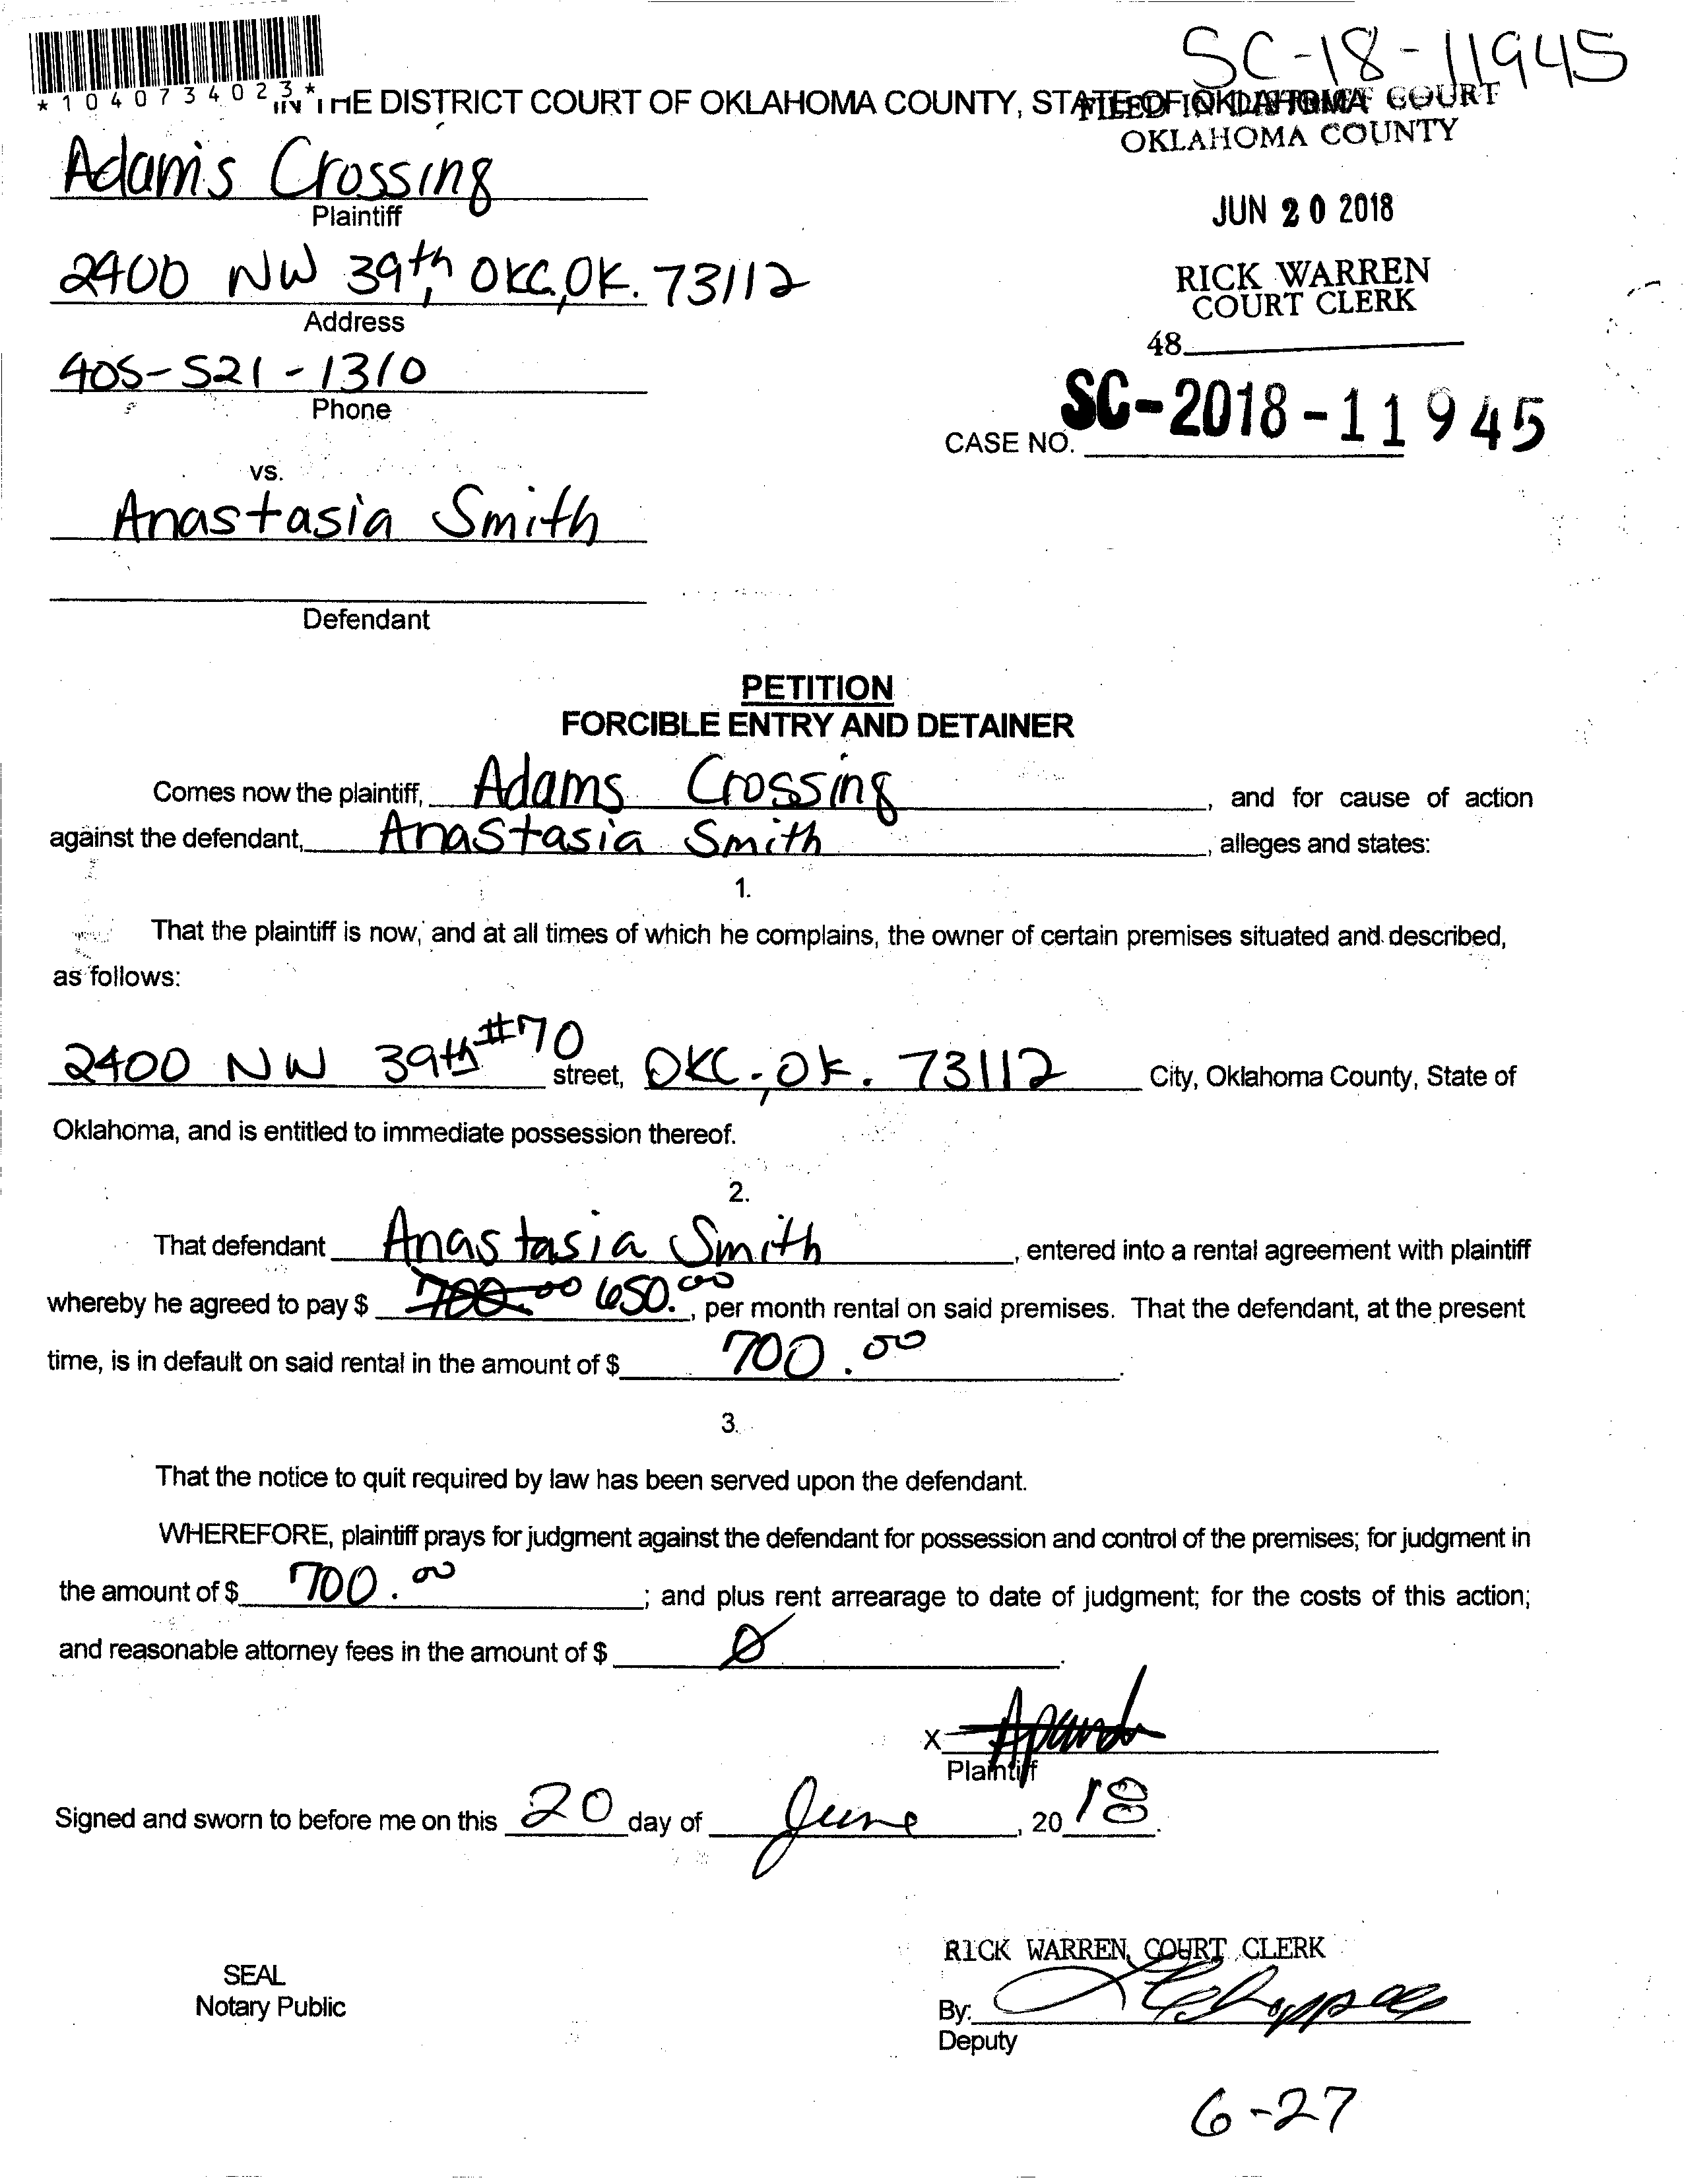 SC-18-11945
*1040734023*
IN THE DISTRICT COURT OF OKLAHOMA COUNTY, STATE OF OKLAHOMA
FILED IN DISTRICT COURT
OKLAHOMA COUNTY
Adams Crossing
Plaintiff
JUN 20 2018
2400 NW 39th, OKC, OK. 73112
Address
RICK WARREN
COURT CLERK
48
405-521-1310
Phone
SC-2018-11945
CASE NO.
vs.
Anastasia Smith
Defendant
PETITION
FORCIBLE ENTRY AND DETAINER
Comes now the plaintiff, Adams Crossing, and for cause of action
against the defendant, Anastasia Smith, alleges and states:
1.
That the plaintiff is now, and at all times of which he complains, the owner of certain premises situated and described,
as follows:
2400 NW 39th #70 street, OKC, OK. 73112 City, Oklahoma County, State of
Oklahoma, and is entitled to immediate possession thereof.
2.
That defendant Anastasia Smith, entered into a rental agreement with plaintiff
whereby he agreed to pay $ 700.00 650.00, per month rental on said premises. That the defendant, at the present
time, is in default on said rental in the amount of $ 700.00.
3.
That the notice to quit required by law has been served upon the defendant.
WHEREFORE, plaintiff prays for judgment against the defendant for possession and control of the premises; for judgment in
the amount of $ 700.00; and plus rent arrearage to date of judgment; for the costs of this action;
and reasonable attorney fees in the amount of $ Ø.
X
Plaintiff
Signed and sworn to before me on this 20 day of June, 2018.
RICK WARREN, COURT CLERK
SEAL
Notary Public
By:
Deputy
6-27